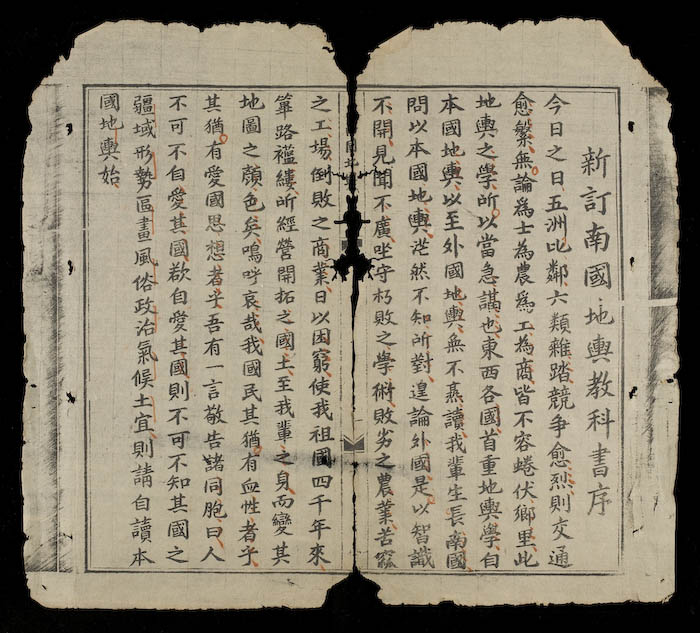 新訂南國地輿教科書序
今日之日五洲比鄰六類雜踏競爭愈烈則交通
愈繁無論為士為農為工為商皆不容蜷伏鄉里此
地輿之學所以當急講也東西各國首重地輿學自
本國地輿以至外國地輿無不熹讀我輩生長南國
問以本國地輿茫然不知所對遑論外國是以智識
不開見聞不廣坐守朽敗之學術敗劣之農業苦窳
之工場倒敗之商業日以困窮使我祖國四千年來
篳路襤縷所經營開拓之國土至我輩之身而變其
地圖之顏色矣嗚呼哀哉我國民其猶有血性者乎
其猶有愛國思想者乎吾有一言敬告諸同胞曰人
不可不自愛其國欲自愛其國則不可不知其國之
疆域形勢區畫風俗政治氣候土宜則請自讀本
國地輿始